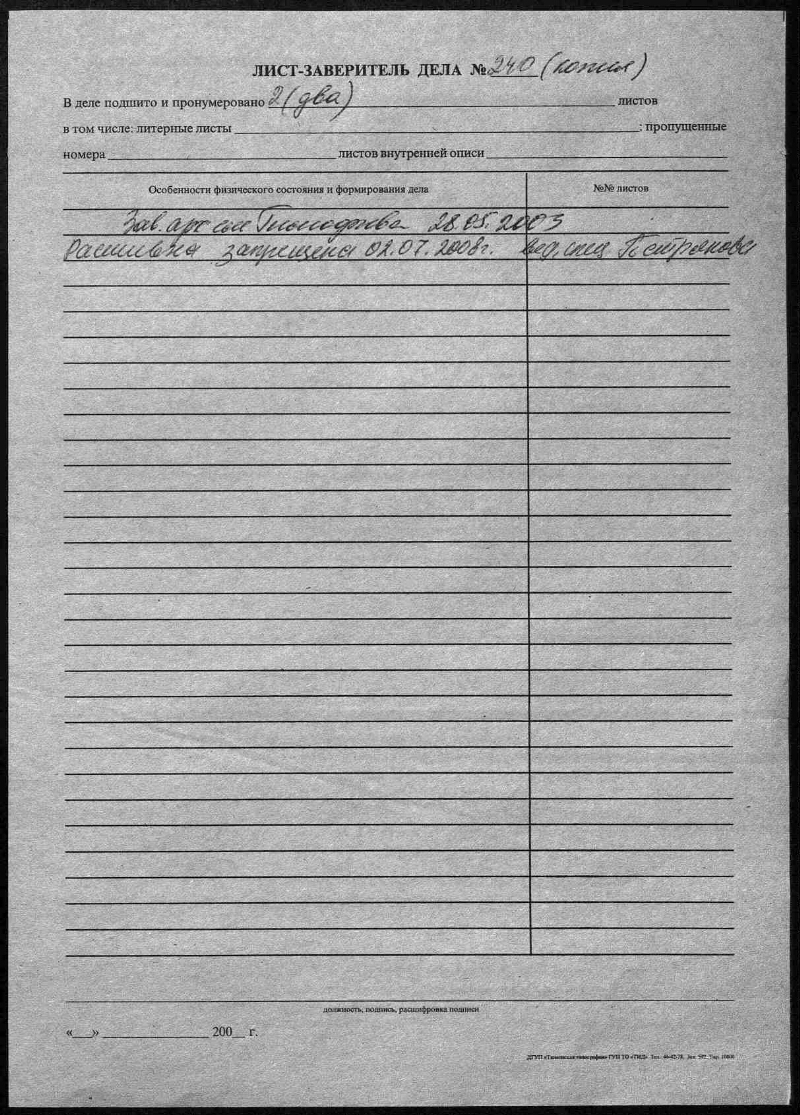 ЛИСТ-ЗАВЕРИТЕЛЬ ДЕЛА № 240 (копия)
В деле подшито и пронумеровано 2 (два) листов
в том числе: литерные листы : пропущенные
номера листов внутренней описи
Особенности физического состояния и формирования дела №№ листов
Зав. арх 28.05.2003
Расшивка запрещена 02.07.2008г. вед. спец Петракова
должность, подпись, расшифровка подписи
«__» 200__ г.
ДГУП «Тюменская типография» ГУП ТО «ТИД»